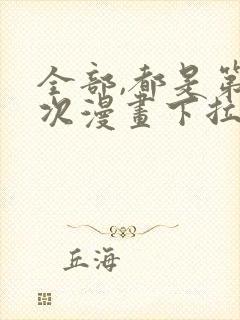 全部,都是第
次漫畫下拉
丘海